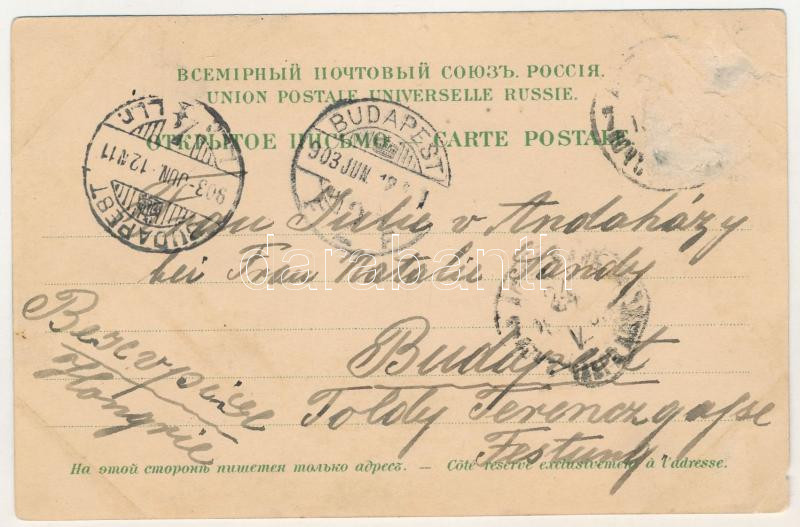 ВСЕМІРНЫЙ ПОЧТОВЫЙ СОЮЗЪ. РОССІЯ.
UNION POSTALE UNIVERSELLE RUSSIE.
ОТКРЫТОЕ ПИСЬМО. CARTE POSTALE
BUDAPEST
903 JUN. 12
BUDAPEST
903 JUN. 12
Frau Julie v Andaházy
bei Frau Natalie Sándy
Budapest
Toldy Ferenczgasse
Festung
Hongrie
darabanth
На этой сторонѣ пишется только адресъ. — Côté réservé exclusivement à l'adresse.